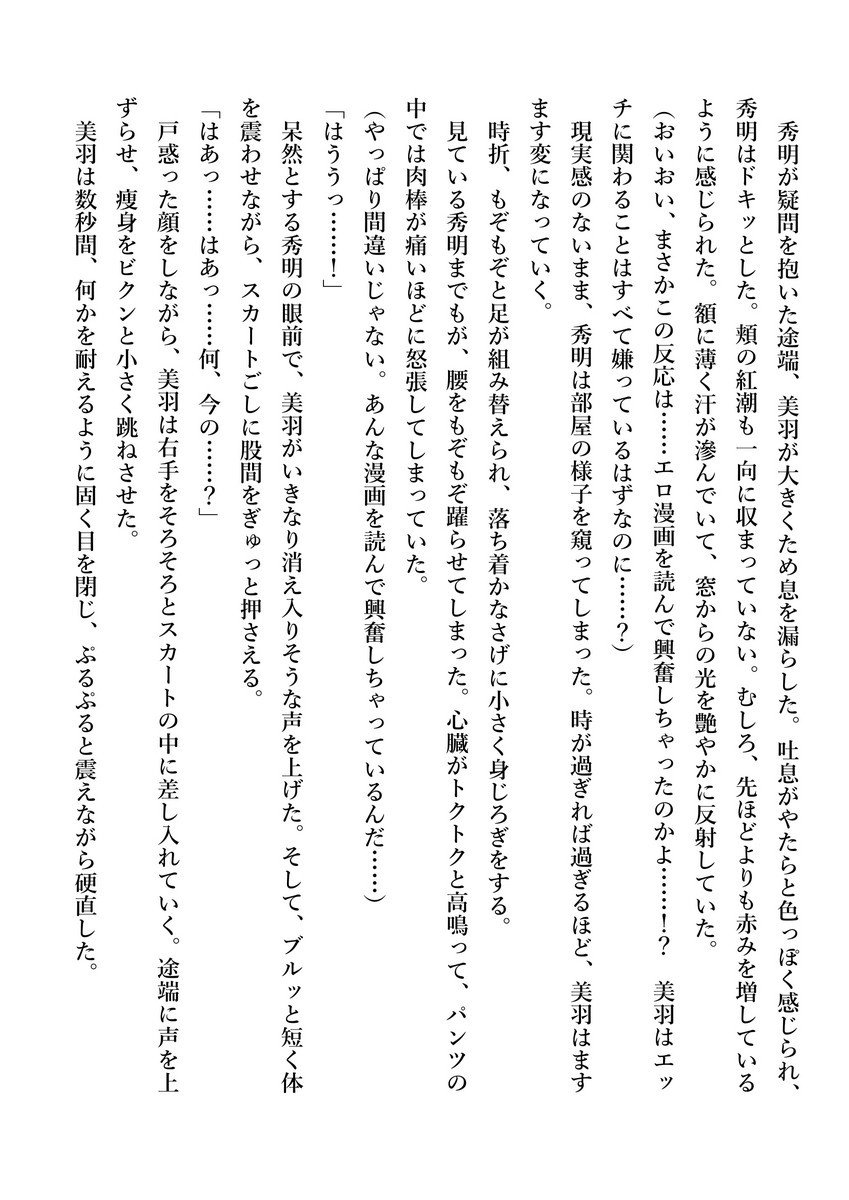 秀明が疑問を抱いた途端、美羽が大きくため息を漏らした。吐息がやたらと色っぽく感じられ、
秀明はドキッとした。頬の紅潮も一向に収まっていない。むしろ、先ほどよりも赤みを増している
ように感じられた。額に薄く汗が滲んでいて、窓からの光を艶やかに反射していた。
(おいおい、まさかこの反応は……エロ漫画を読んで興奮しちゃったのかよ……!?　美羽はエッ
チに関わることはすべて嫌っているはずなのに……?)
現実感のないまま、秀明は部屋の様子を窺ってしまった。時が過ぎれば過ぎるほど、美羽はます
ます変になっていく。
時折、もぞもぞと足が組み替えられ、落ち着かなさげに小さく身じろぎをする。
見ている秀明までもが、腰をもぞもぞ躍らせてしまった。心臓がトクトクと高鳴って、パンツの
中では肉棒が痛いほどに怒張してしまっていた。
(やっぱり間違いじゃない。あんな漫画を読んで興奮しちゃっているんだ……)
「はううっ……!」
呆然とする秀明の眼前で、美羽がいきなり消え入りそうな声を上げた。そして、ブルッと短く体
を震わせながら、スカートごしに股間をぎゅっと押さえる。
「はあっ……はあっ……何、今の……?」
戸惑った顔をしながら、美羽は右手をそろそろとスカートの中に差し入れていく。途端に声を上
ずらせ、痩身をビクンと小さく跳ねさせた。
美羽は数秒間、何かを耐えるように固く目を閉じ、ぷるぷると震えながら硬直した。